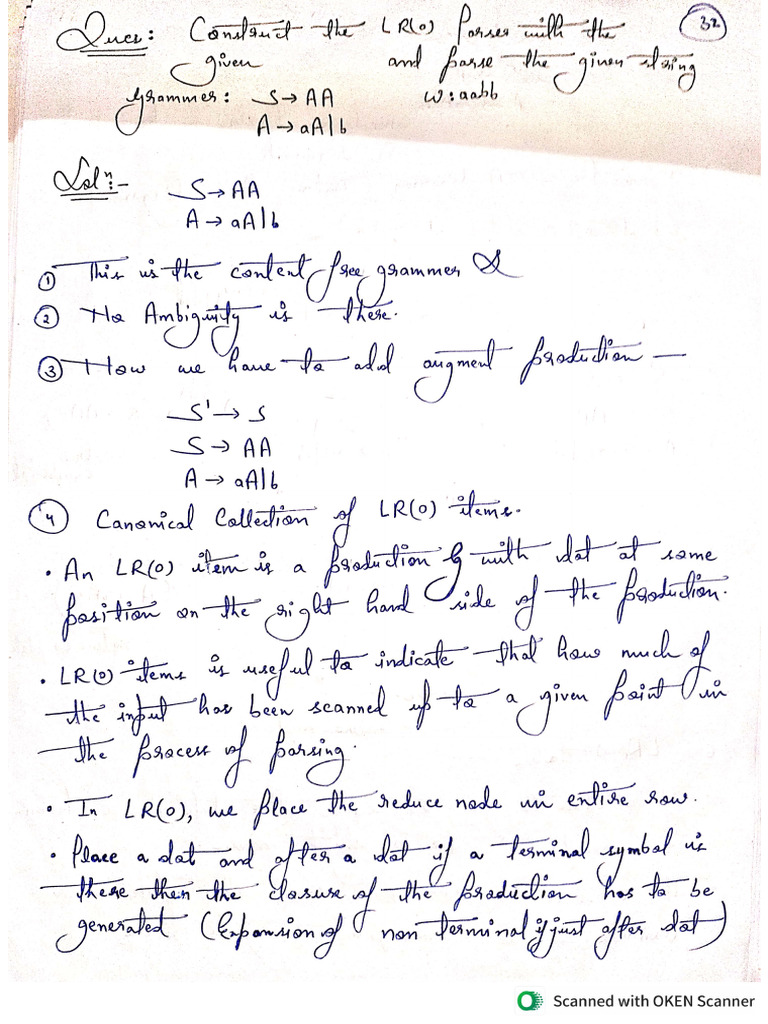 Ques: Construct the LR(0) Parser with the
given and parse the given string
32
grammer: S → AA w: aabb
A → aA|b
Solⁿ:-
S → AA
A → aA|b
① This is the content free grammer &
② No Ambiguity is there.
③ Now we have to add augment production —
S' → S
S → AA
A → aA|b
④ Canonical Collection of LR(0) items.
• An LR(0) item is a production G with dot at some
position on the right hand side of the production.
• LR(0) items is useful to indicate that how much of
the input has been scanned up to a given point in
the process of parsing.
• In LR(0), we place the reduce node in entire row.
• Place a dot and after a dot if a terminal symbol is
there then the closure of the production has to be
generated (Expansion of non terminal if just after dot)
Scanned with OKEN Scanner